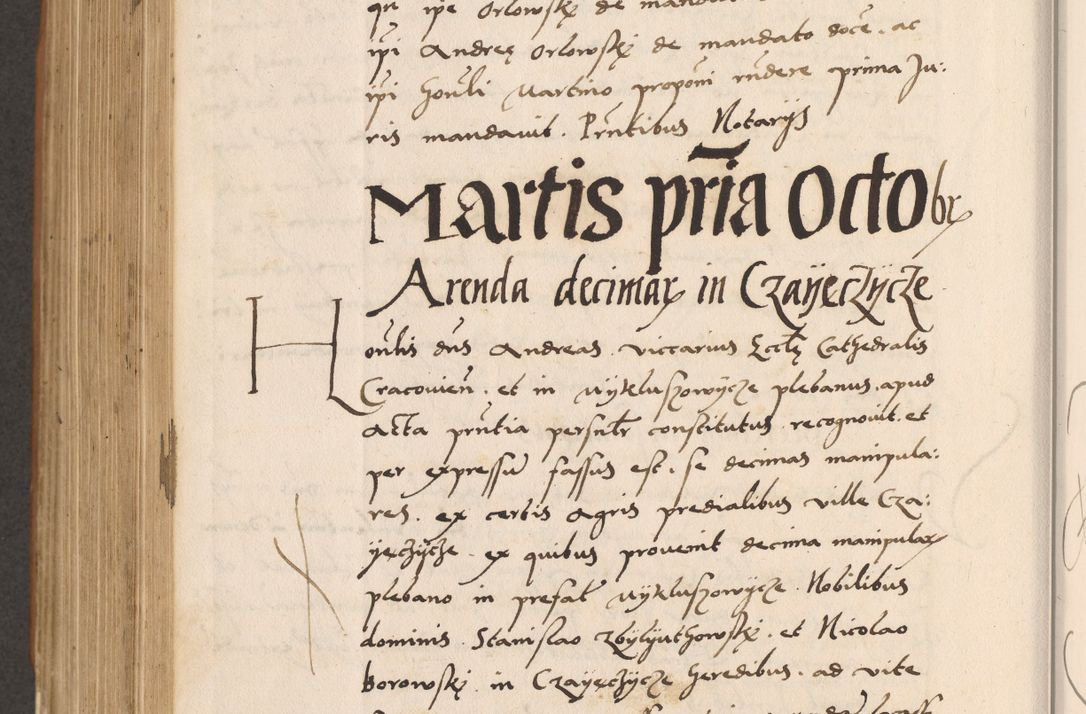 ipi Andreę Orlowskj de mandato doce. ac
ipi honĩli Martino proponi rñdere prima Ju:
ris mandavit. Prñtibus Notarijs
Martis pr̃ia Octobr
Arenda decimar in Czayęczycze
Honĩlis dñs Andreas viccarius Eccłę Cathedralis
Cracovień. et in Wykluszowycze plebanus, apud
Acta prñtia persnłr constitutus recognovit. et
per expressũ fassus est. se decimas manipula:
res. ex certis agris predialibus ville Cza:
yęczycze. ex quibus provenit decima manipular
plebano in prefat Wykluszowycze. Nobilibus
dominis. Stanislao Zbylyuthowskj. et Nicolao
Borowskj in Czayęczycze heredibus. ad vite